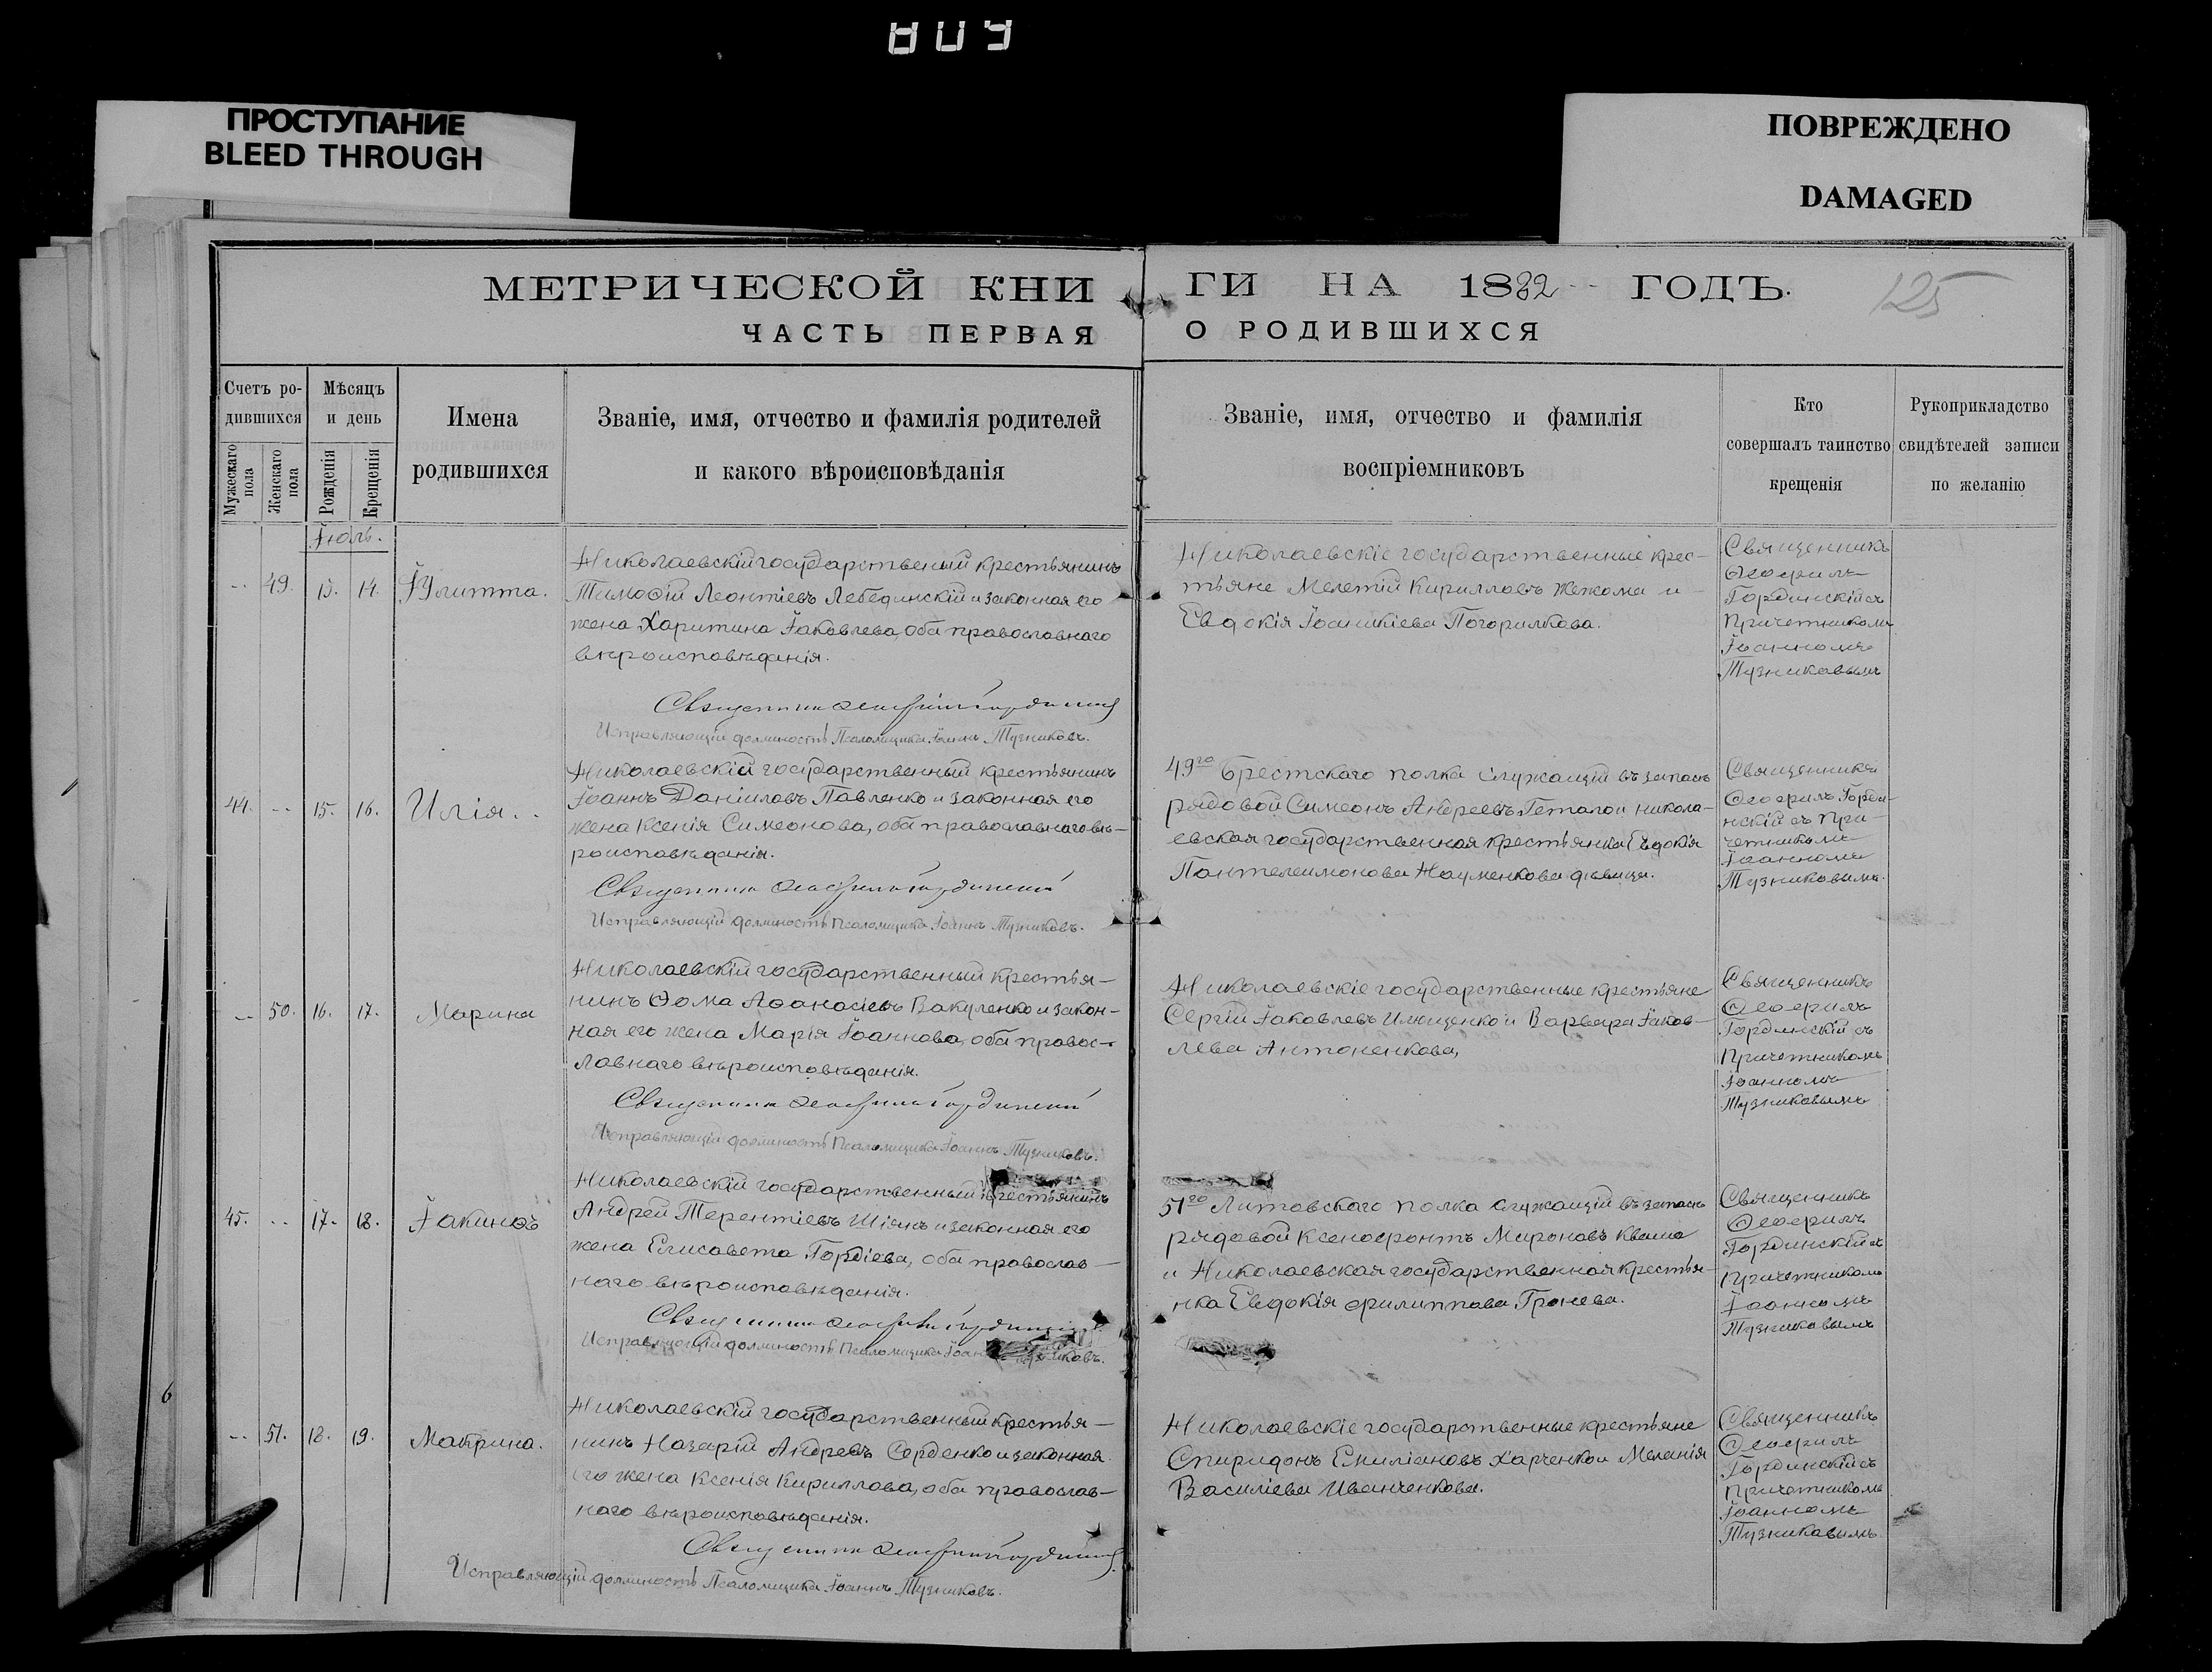 809
ПРОСТУПАНИЕ
BLEED THROUGH
ПОВРЕЖДЕНО
DAMAGED
МЕТРИЧЕСКОЙ КНИ
ГИ НА 1882 ГОДЪ.
125
ЧАСТЬ ПЕРВАЯ
О РОДИВШИХСЯ
Счетъ ро-
дившихся
Мужескаго
пола
Женскаго
пола
Мѣсяцъ
и день
Рожденія
Крещенія
Имена
родившихся
Званіе, имя, отчество и фамилія родителей
и какого вѣроисповѣданія
Званіе, имя, отчество и фамилія
воспріемниковъ
Кто
совершалъ таинство
крещенія
Рукоприкладство
свидѣтелей записи
по желанію
Іюль.
49. 13. 14. Іулитта.
Николаевскій государственый крестьянинъ
Тимоѳій Леонтіевъ Лебединскій и законная его
жена Харитина Іаковлева, оба православнаго
вѣроисповѣданія.
Священникъ Ѳеофилъ Гординскій
Исправляющій должность Псаломщика Іоаннъ Тузниковъ.
Николаевскіе государственные крес-
тьяне Мелетій Кирилловъ Жежома и
Евдокія Іоаникіева Погорилкова.
Священникъ
Ѳеофилъ
Гординскій съ
Причетникомъ
Іоанномъ
Тузниковымъ
44. 15. 16. Илія.
Николаевскій государственный крестьянинъ
Іоаннъ Даніиловъ Павленко и законная его
жена Ксенія Симеонова, оба православнаго вѣ-
роисповѣданія.
Священникъ Ѳеофилъ Гординскій
Исправляющій должность Псаломщика Іоаннъ Тузниковъ.
49го Брестскаго полка служащій въ запасѣ
рядовой Симеонъ Андреевъ Гетало и никола-
евская государственная крестьянка Евдокія
Пантелеимонова Науменкова дѣвица.
Священникъ
Ѳеофилъ Горди-
нскій съ При-
четникомъ
Іоанномъ
Тузниковымъ.
50. 16. 17. Марина
Николаевскій государственный крестья-
нинъ Ѳома Аѳанасіевъ Вакуленко и закон-
ная его жена Марія Іоаннова, оба правос-
лавнаго вѣроисповѣданія.
Священникъ Ѳеофилъ Гординскій
Исправляющій должность Псаломщика Іоаннъ Тузниковъ.
Николаевскіе государственные крестьяне
Сергій Іаковлевъ Илющенко и Варвара Іаков-
лева Антоненкова,
Священникъ
Ѳеофилъ
Гординскій съ
Причетникомъ
Іоанномъ
Тузниковымъ
45. 17. 18. Іакинѳъ
Николаевскій государственный крестьянинъ
Андрей Терентіевъ Шіянъ и законная его
жена Елисавета Гордіева, оба православ-
наго вѣроисповѣданія.
Священникъ Ѳеофилъ Гординскій
Исправляющій должность Псаломщика Іоаннъ Тузниковъ.
51го Литовскаго полка служащій въ запасѣ
рядовой Ксенофонтъ Мироновъ Кваша
и Николаевская государственная крестья-
нка Евдокія Филиппова Гронева.
Священникъ
Ѳеофилъ
Гординскій съ
Причетникомъ
Іоанномъ
Тузниковымъ
51. 18. 19. Макрина.
Николаевскій государственный крестья-
нинъ Назарій Андреевъ Серденко и законная
его жена Ксенія Кириллова, оба православ-
наго вѣроисповѣданія.
Священникъ Ѳеофилъ Гординскій
Исправляющій должность Псаломщика Іоаннъ Тузниковъ.
Николаевскіе государственные крестьяне
Спиридонъ Емиліановъ Харченко и Меланія
Василіева Иванченкова.
Священникъ
Ѳеофилъ
Гординскій съ
Причетникомъ
Іоанномъ
Тузниковымъ
6